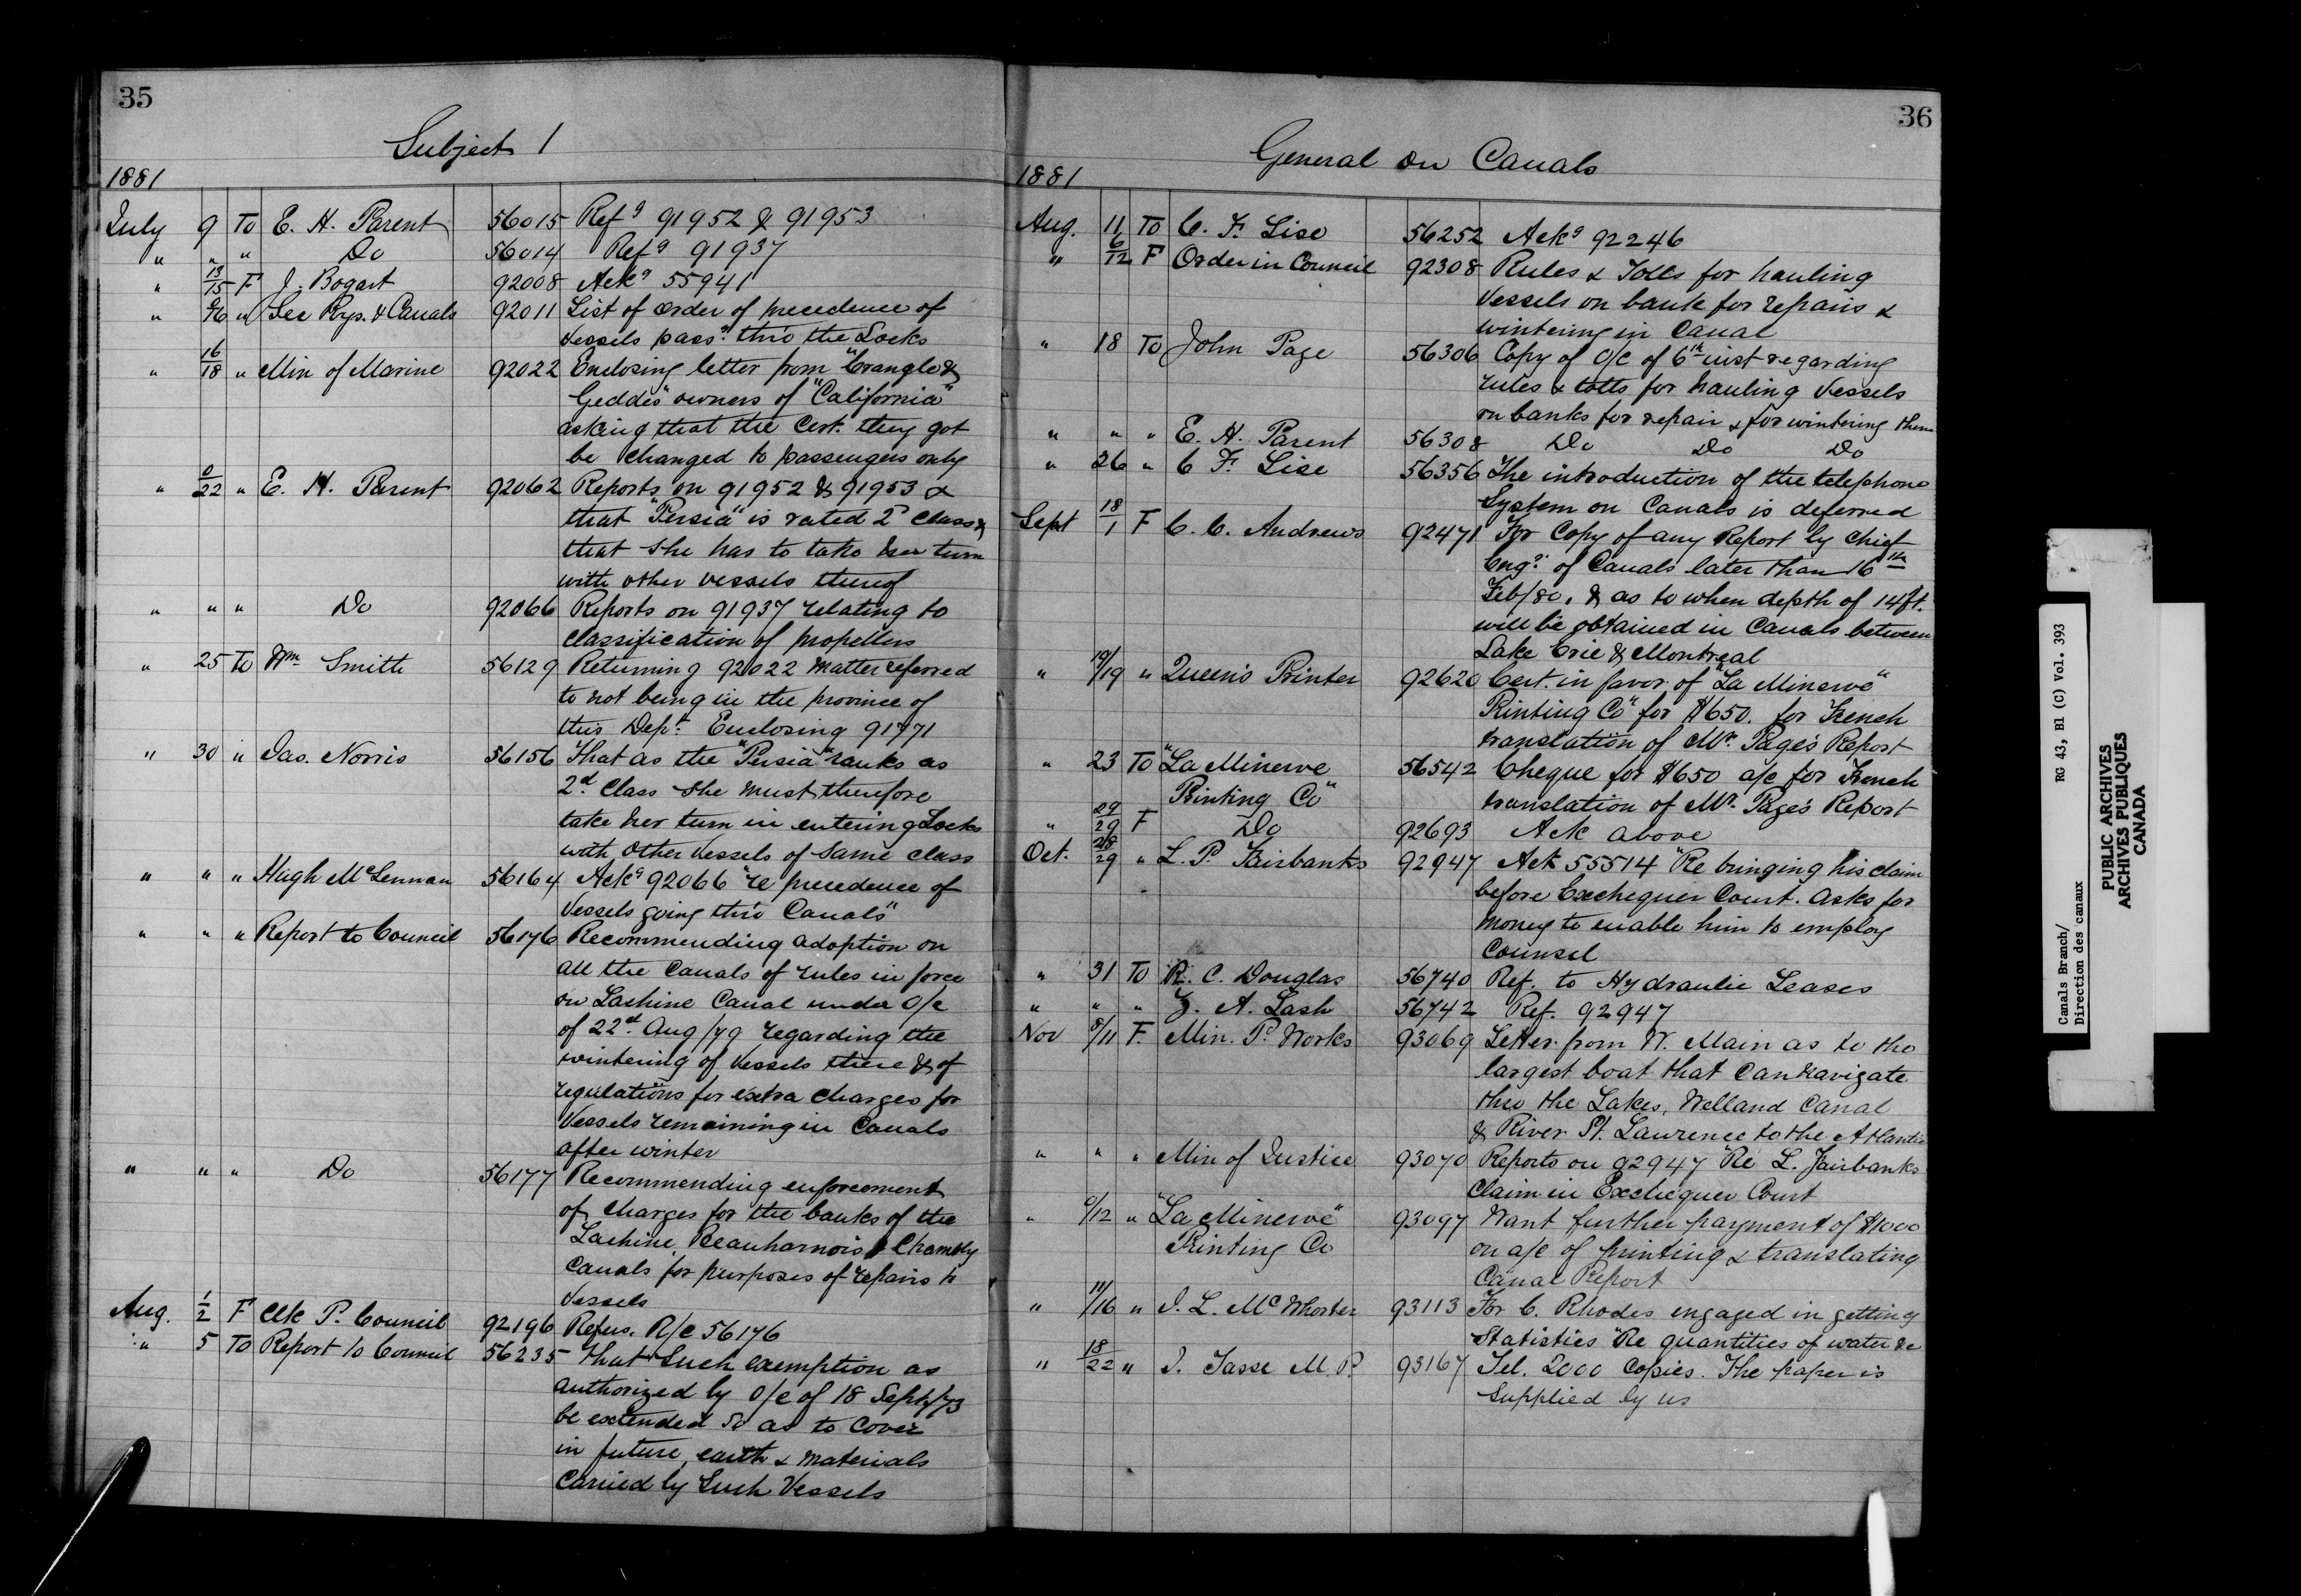 35
Subject 1
1881
July 9 To E. H. Parent 56015 Refg 91952 & 91953
" " " Do 56014 Refg 91937
" 13/15 F J. Bogart 92008 Ackg 55941
" 0/16 " Sec Rys. & Canals 92011 List of order of precedence of
Vessels passg thro the Locks
" 16/18 " Min of Marine 92022 Enclosing letter from "Crangle &
Geddis" owners of "California"
asking that the Cert. they got
be changed to passengers only
" 0/22 " E. H. Parent 92062 Reports on 91952 & 91953 &
that "Persia" is rated 2d class &
that she has to take her turn
with other vessels thereof
" " " Do 92066 Reports on 91937 relating to
Classification of propellers
" 25 To Wm Smith 56129 Returning 92022 matter referred
to not being in the province of
this Dept. Enclosing 91771
" 30 " Jas. Norris 56156 That as the "Persia" ranks as
2d Class she must therefore
take her turn in entering Locks
with other vessels of same class
" " " Hugh McLennan 56164 Ackg 92066 "re precedence of
Vessels going thro Canals"
" " " Report to Council 56176 Recommending adoption on
all the Canals of rules in force
on Lachine Canal under O/C
of 22d Aug/79 regarding the
wintering of Vessels there & of
regulations for extra charges for
Vessels remaining in Canals
after winter
" " " Do 56177 Recommending enforcement
of charges for the banks of the
Lachine, Beauharnois & Chambly
Canals for purposes of repairs to
Vessels
Aug. 1/2 F Clk P. Council 92196 Refers. R/C 56176
" 5 To Report to Council 56235 That such exemption as
authorized by O/C of 18 Sept/73
be extended so as to cover
in future, earth & materials
carried by such Vessels
36
General on Canals
1881
Aug. 11 To C. F. Lise 56252 Ackg 92246
" 6/12 F Order in Council 92308 Rules & Tolls for hauling
Vessels on bank for repairs &
wintering in Canal
" 18 To John Page 56306 Copy of O/C of 6th inst regarding
rules & tolls for hauling Vessels
on banks for repair & for wintering them
" " " E. H. Parent 56308 Do Do Do
" 26 " C F. Lise 56356 The introduction of the telephone
System on Canals is deferred
Sept 18/1 F C. C. Andrews 92471 For Copy of any Report by Chief
Engr of Canals later than 16th
Feb/80. & as to when depth of 14 ft.
will be obtained in Canals between
Lake Erie & Montreal
" 19/19 " Queen's Printer 92620 Cert. in favor of "La Minerve"
Printing Co" for $650. for French
translation of Mr. Page's Report
" 23 To "La Minerve 56542 Cheque for $650 a/c for French
Printing Co" translation of Mr. Page's Report
" 29/29 F Do 92693 Ack above
Oct. 28/29 " L. P. Fairbanks 92947 Ack 55514 "Re bringing his claim
before Exchequer Court. Asks for
money to enable him to employ
Counsel
" 31 To R. C. Douglas 56740 Ref. to Hydraulic Leases
" " " Z. A. Lash 56742 Ref. 92947
Nov 8/11 F. Min. P. Works 93069 Letter from W. Main as to the
largest boat that can navigate
thro the Lakes, Welland Canal
& River St. Lawrence to the Atlantic
" " " Min of Justice 93070 Reports on 92947 "Re L. Fairbanks
Claim in Exchequer Court
" 0/12 " "La Minerve" 93097 Want further payment of $1000
Printing Co on a/c of printing & translating
Canal Report
" 11/16 " J. L. McWhorter 93113 For C. Rhodes engaged in getting
Statistics "Re quantities of water &c
" 18/22 " J. Tasse M. P. 93167 Tel. 2000 Copies. The paper is
supplied by us
Canals Branch/ RG 43, B1 (C) Vol. 393
Direction des canaux
PUBLIC ARCHIVES
ARCHIVES PUBLIQUES
CANADA